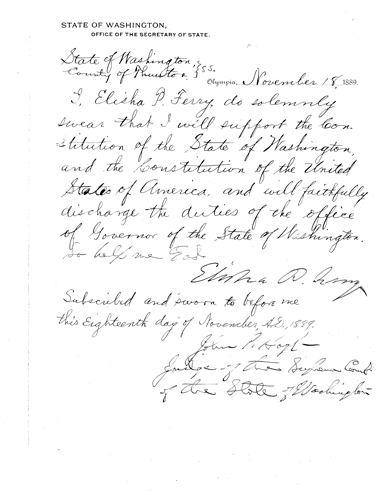 STATE OF WASHINGTON,
OFFICE OF THE SECRETARY OF STATE.
State of Washington, } ss.
County of Thurston, }
Olympia, November 18, 1889.
I, Elisha P. Ferry, do solemnly
swear that I will support the Con-
stitution of the State of Washington,
and the Constitution of the United
States of America, and will faithfully
discharge the duties of the office
of Governor of the State of Washington.
So help me God
Elisha P. Ferry
Subscribed and sworn to before me
this Eighteenth day of November, A.D. 1889.
John P. Hoyt
Judge of the Supreme Court
of the State of Washington